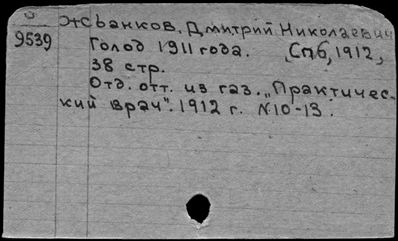 Жбанков, Дмитрий Николаевич
9539
Голод 1911 года. (Спб, 1912,
38 стр.
Отд. отт. из газ. „Практичес-
кий врач". 1912 г. №10-13.